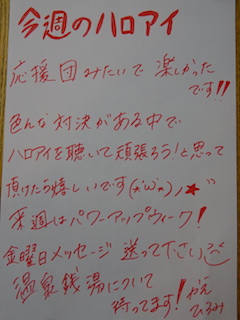 今週のハロアイ
応援団みたいで楽しかった
です!!
色んな対決がある中で
ハロアイを聴いて頑張ろう!と思って
頂けたら嬉しいです(*'ω'*)ノ★彡
来週はパワーアップウィーク!
金曜日メッセージ送って下さい
温泉銭湯について
待ってます!
かえ
ひろみ